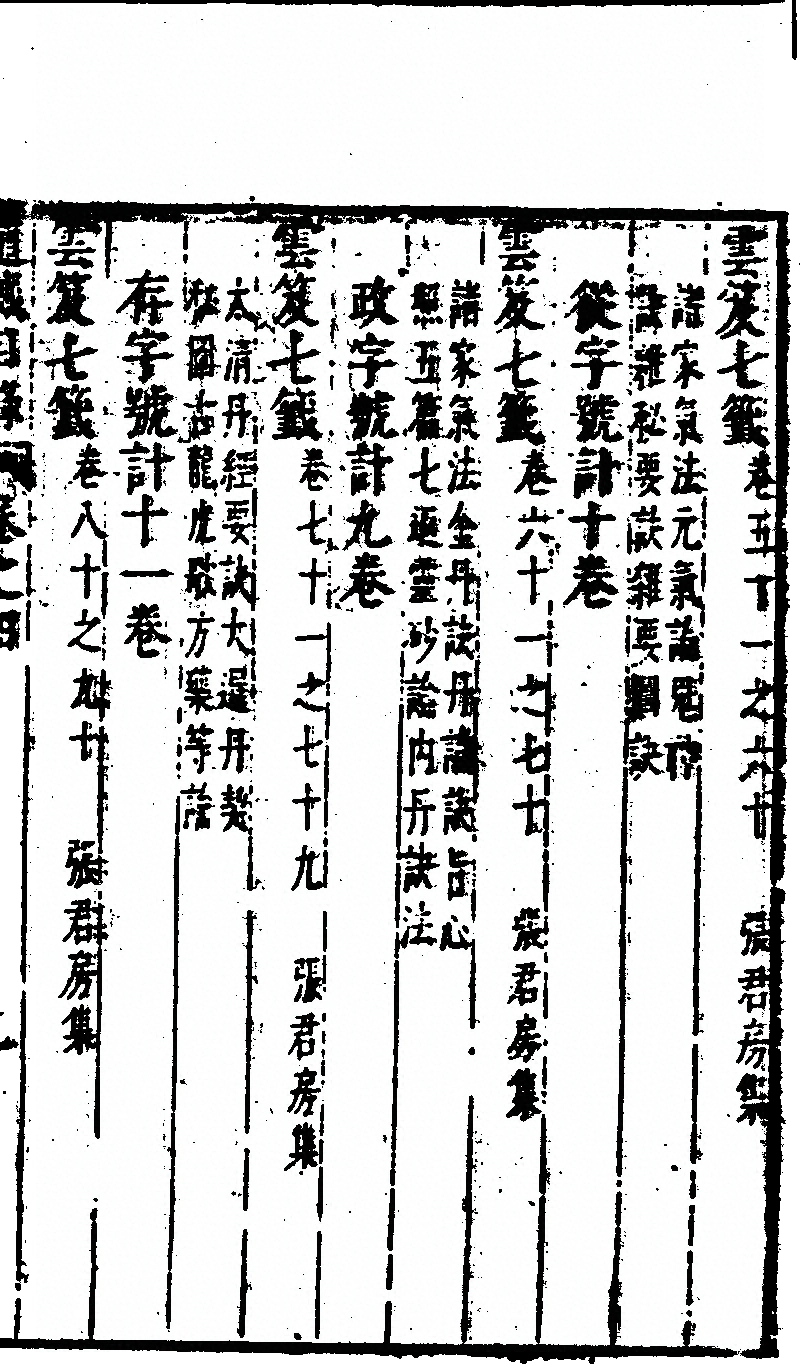 雲笈七籤 卷五十一之六十 張君房集
諸家氣法元氣論胎
諸雜秘要訣雜要圖訣
從字號計十卷
雲笈七籤 卷六十一之七十 張君房集
諸家氣法金丹訣丹論訣旨心
照五篇七返靈砂論內丹訣法
政字號計九卷
雲笈七籤 卷七十一之七十九 張君房集
太清丹經要訣大還丹契
秘圖古龍虎歌方藥等論
存字號計十一卷
雲笈七籤 卷八十之九十 張君房集
道藏目錄卷之四